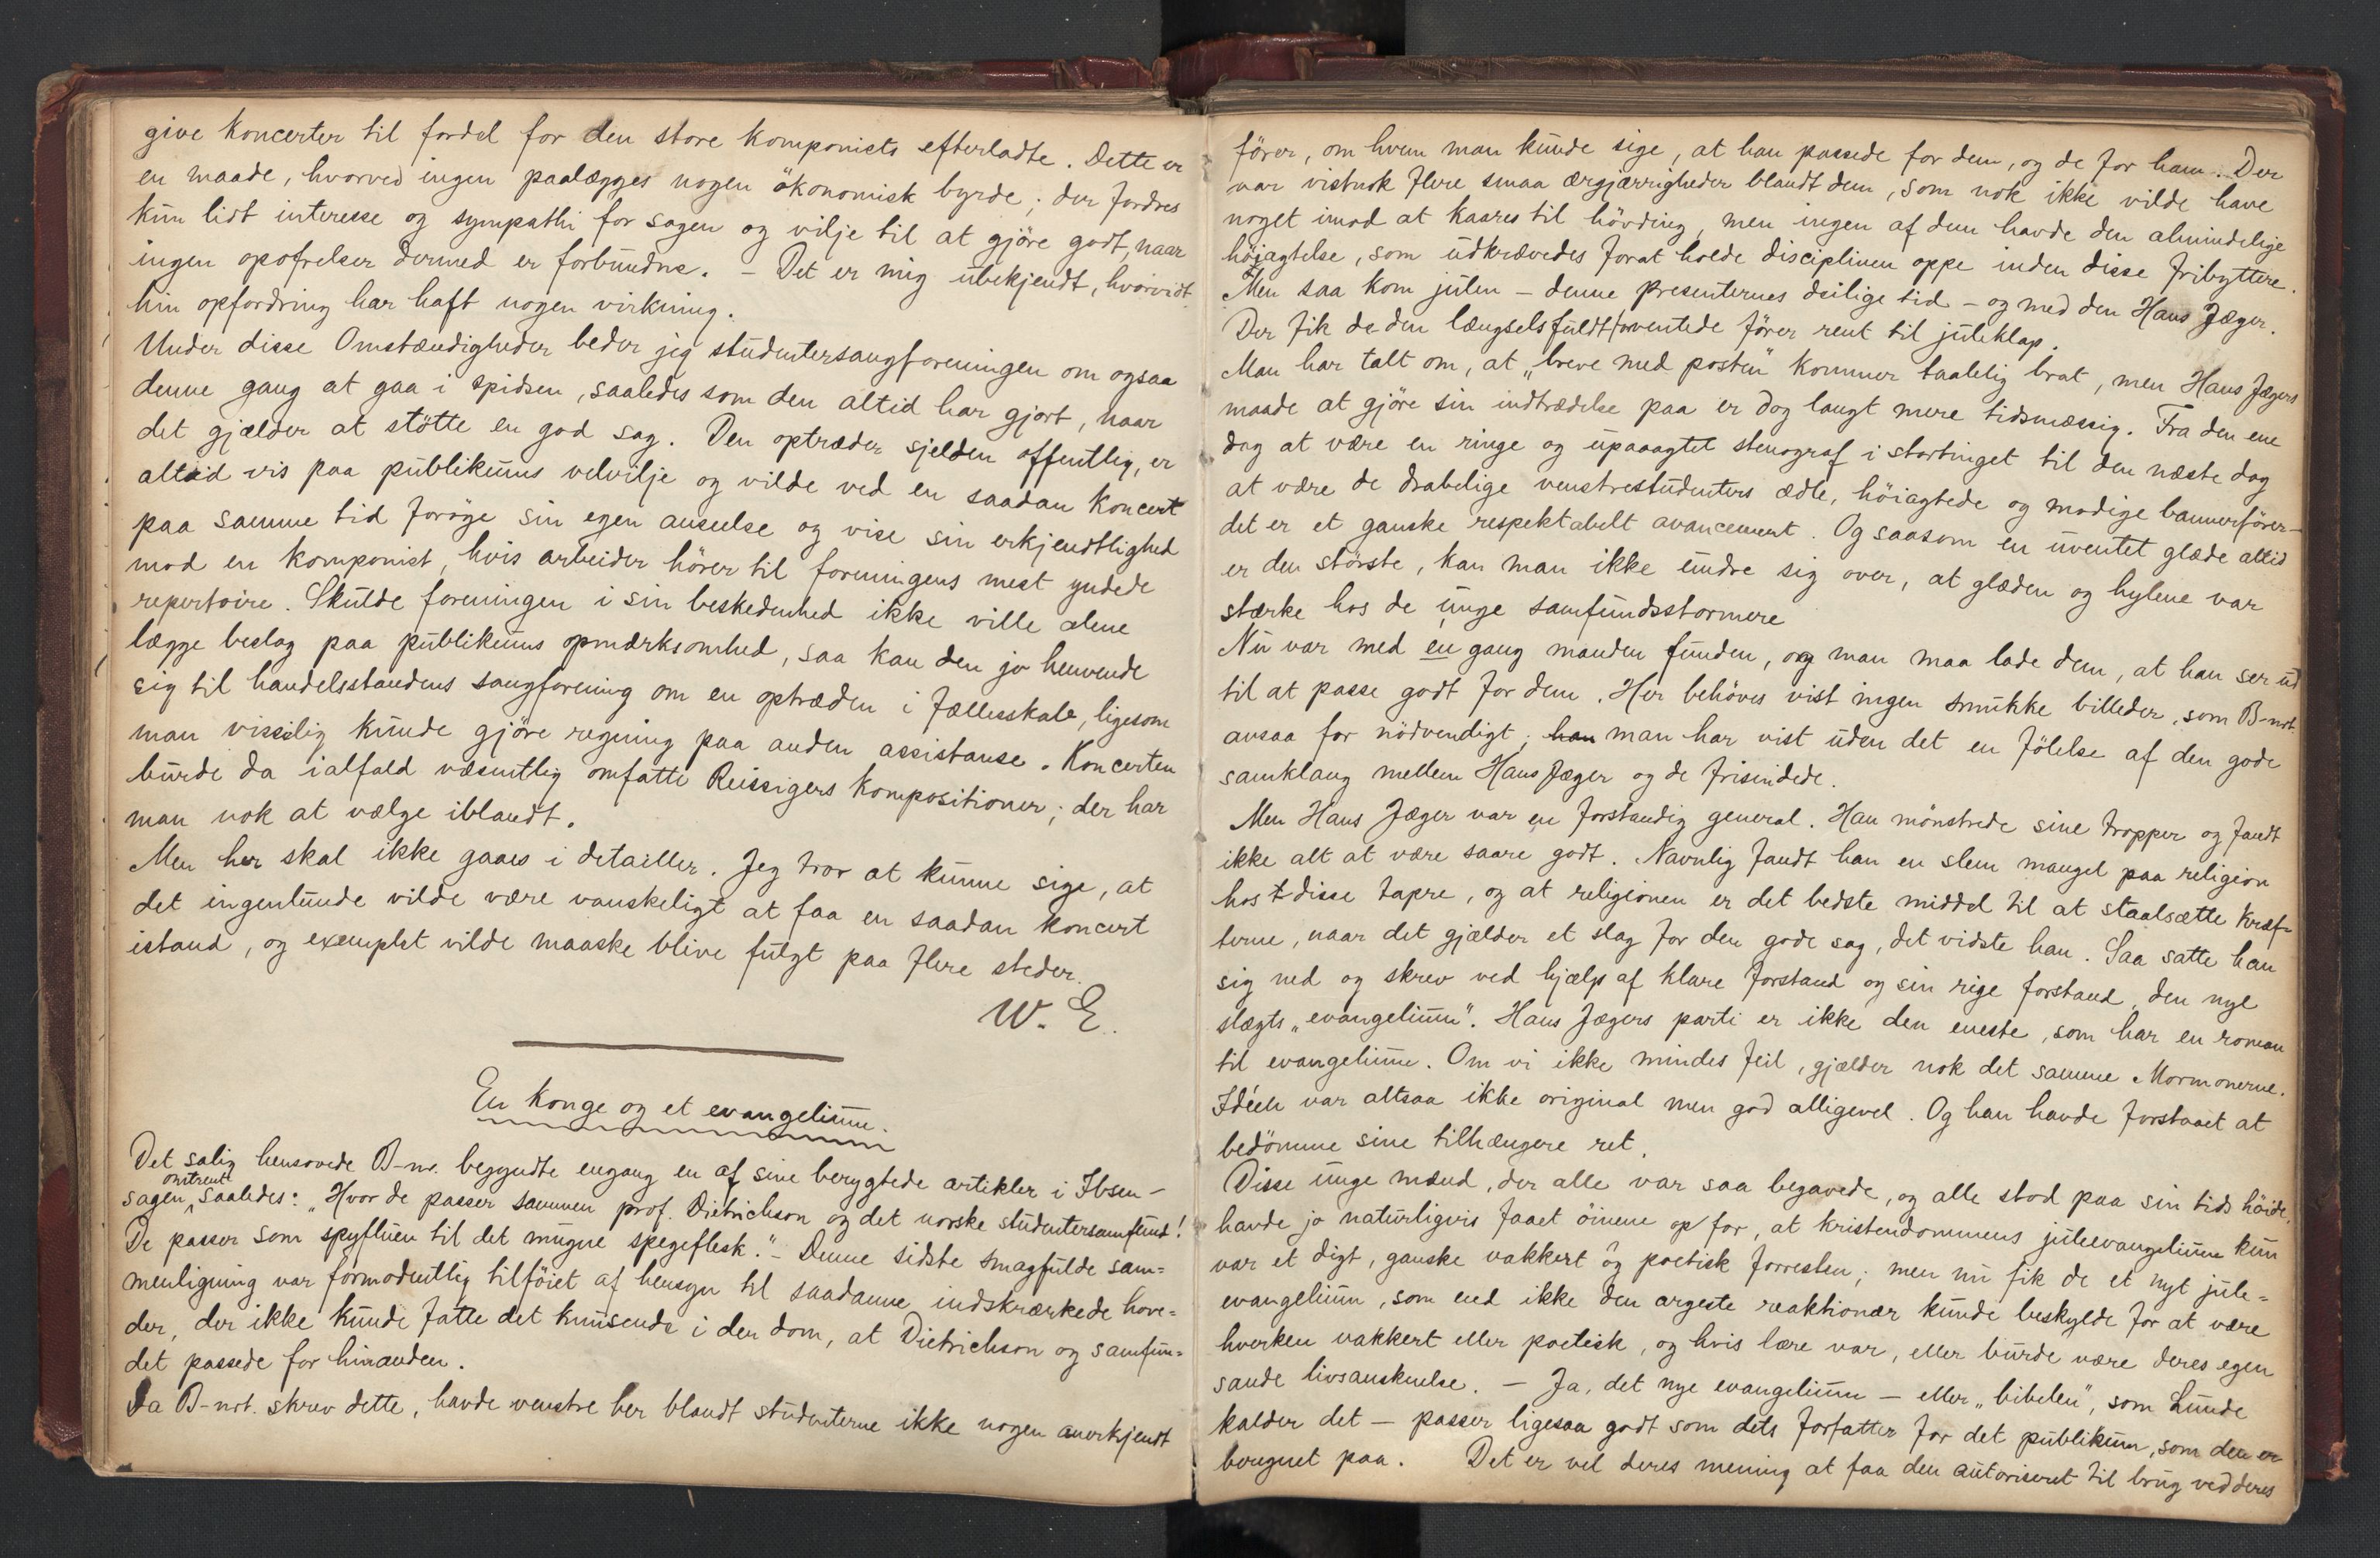 give koncerter til fordel for den store komponists efterladte. Dette er
en maade, hvorved ingen paalægges nogen ökonomisk byrde; der fordres
kun lidt interesse og sympathi for sagen og vilje til at gjöre godt, naar
ingen opofrelser dermed er forbundne. – Det er mig ubekjendt, hvorvidt
hin opfordring har haft nogen virkning.
Under disse Omstændigheder beder jeg studentersangforeningen om ogsaa
denne gang at gaa i spidsen, saaledes som den altid har gjort, naar
det gjælder at stötte en god sag. Den optræder sjelden offentlig, er
altid vis paa publikums velvilje og vilde ved en saadan koncert
paa samme tid foröge sin egen anseelse og vise sin erkjendtlighed
mod en komponist, hvis arbeider hörer til foreningens mest yndede
repertoire. Skulde foreningen i sin beskedenhed ikke ville alene
lægge beslag paa publikums opmærksomhed, saa kan den jo henvende
sig til handelsstandens sangforening om en optræden i fællesskab, ligesom
man visselig kunde gjöre regning paa anden assistanse. Koncerten
burde da ialfald væsentlig omfatte Reissigers kompositioner; der har
man nok at vælge iblandt.
Men her skal ikke gaaes i detailler. Jeg tror at kunne sige, at
det ingenlunde vilde være vanskeligt at faa en saadan koncert
istand, og exemplet vilde maaske blive fulgt paa flere steder.
W. E.
En konge og et evangelium.
Det salig hensovede B-nr. begyndte engang en af sine berygtede artikler i Ibsen-
sagen omtrent saaledes: "Hvor de passer sammen prof. Dietrichson og det norske studentersamfund!
De passer som spyfluen til det mugne spegeflesk." – Denne sidste smagfulde sam=
menligning var formodentlig tilföiet af hensyn til saadanne indskrænkede hove=
der, der ikke kunde fatte det knusende i den dom, at Dietrichson og samfun=
det passede for hinanden.
Da B-not. skrev dette, havde venstre her blandt studenterne ikke nogen anerkjendt
förer, om hvem man kunde sige, at han passede for dem, og de for ham. Der
var vistnok flere smaa ærgjærrigheder blandt dem, som nok ikke vilde have
noget imod at kaares til hövding, men ingen af dem havde den almindelige
höjagtelse, som udkrævedes forat holde disciplinen oppe inden disse fribyttere.
Men saa kom julen – denne presenternes deilige tid – og med den Hans Jæger.
Der fik de den længselsfuldt forventede förer rent til juleklap.
Man har talt om, at "breve med posten" kommer taalelig brat, men Hans Jægers
maade at gjöre sin indtrædelse paa er dog langt mere tidsmæssig. Fra den ene
dag at være en ringe og upaaagtet stenograf i stortinget til den næste dag
at være de drabelige venstrestudenters ædle, höiagtede og modige bannerförer –
det er et ganske respektabelt avancement. Og saasom en uventet glæde altid
er den störste, kan man ikke undre sig over, at glæden og hylene var
stærke hos de unge samfundsstormere
Nu var med en gang manden funden, og man maa lade dem, at han ser ud
til at passe godt for dem. Her behöves vist ingen smukke billeder, som B-not.
ansaa for nödvendigt; han man har vist uden det en fölelse af den gode
samklang mellem Hans Jæger og de frisindede.
Men Hans Jæger var en forstandig general. Han mönstrede sine tropper og fandt
ikke alt at være saare godt. Navnlig fandt han en slem mangel paa religion
hos disse tapre, og at religionen er det bedste middel til at staalsætte kræf=
terne, naar det gjælder et slag for den gode sag, det vidste han. Saa satte han
sig ned og skrev ved hjælp af klare forstand og sin rige forstand den nye
slægts "evangelium". Hans Jægers parti er ikke den eneste, som har en roman
til evangelium. Om vi ikke mindes feil, gjælder nok det samme Mormonerne.
Idéen var altsaa ikke original men god alligevel. Og han havde forstaaet at
bedömme sine tilhængere ret.
Disse unge mænd, der alle var saa begavede, og alle stod paa sin tids höide,
havde jo naturligvis faaet öinene op for, at kristendommens juleevangelium kun
var et digt, ganske vakkert og poetisk forresten; men nu fik de et nyt jule=
evangelium, som end ikke den argeste reaktionær kunde beskylde for at være
hverken vakkert eller poetisk, og hvis lære var, eller burde være deres egen
sande livsanskuelse. – Ja, det nye evangelium – eller "bibelen", som Lunde
kalder det – passer ligesaa godt som dets forfatter for det publikum, som den er
beregnet paa. Det er vel deres mening at faa den autoriseret til brug ved deres